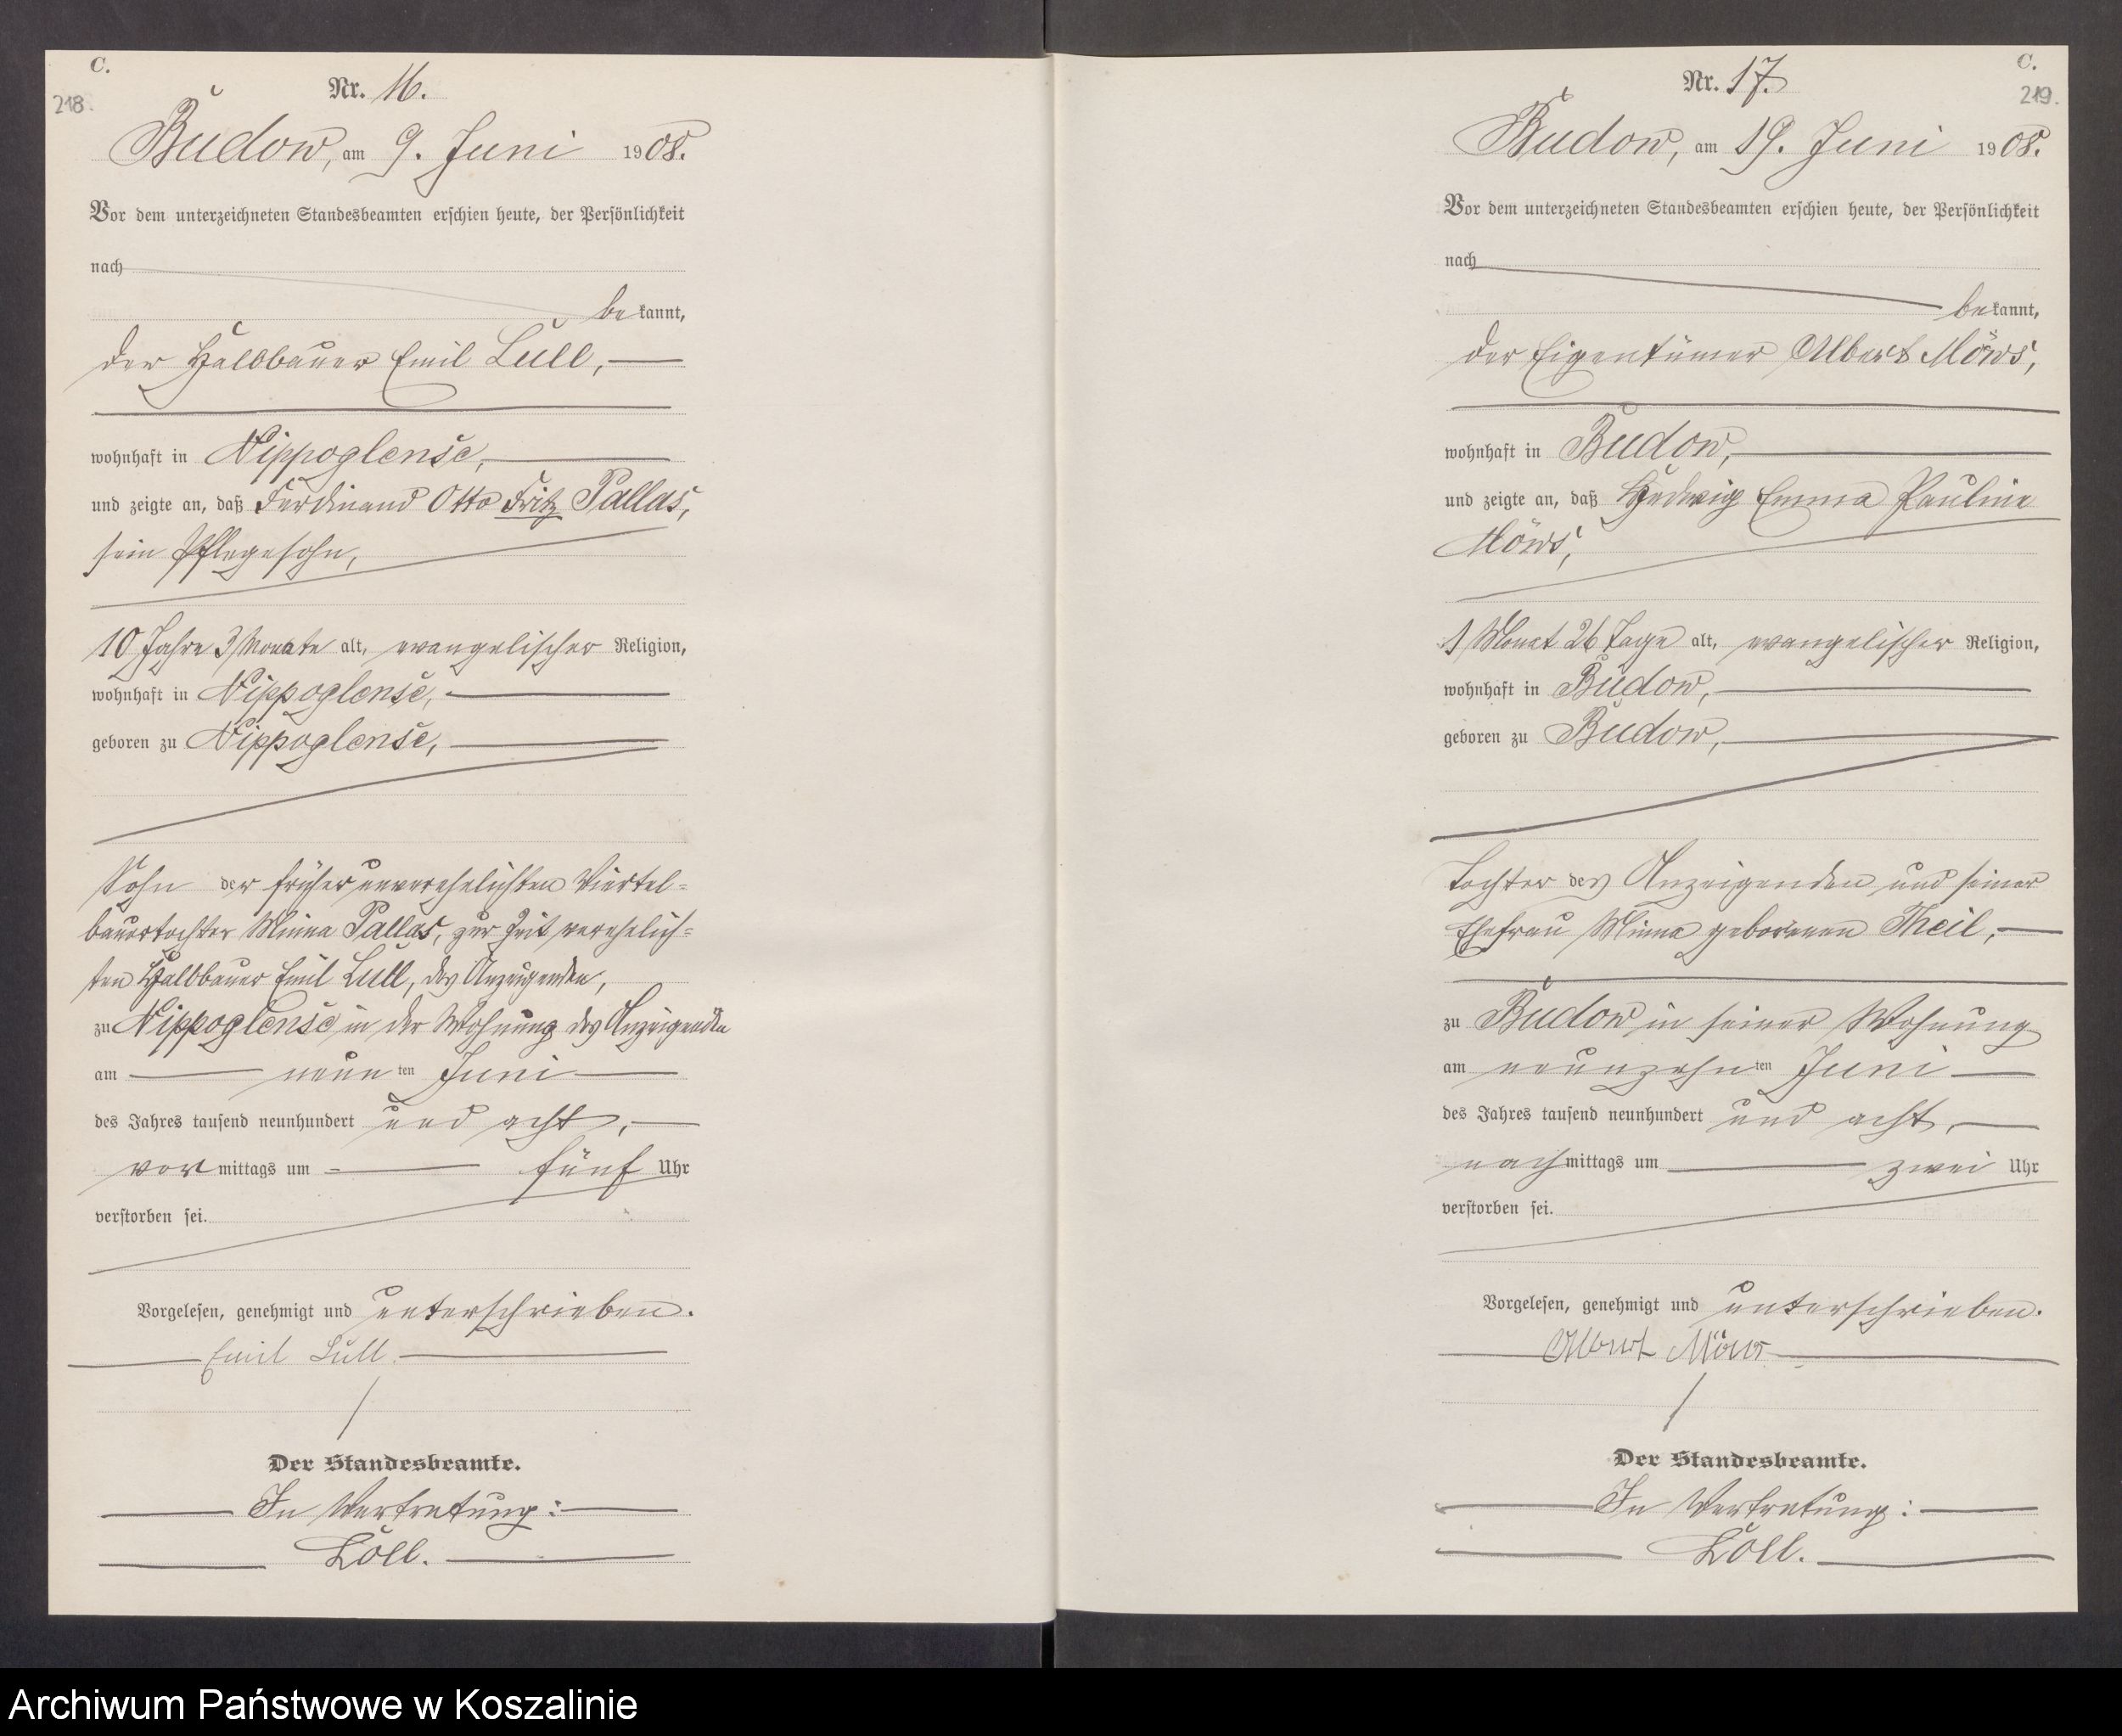 C.
218.
Nr. 16.
Budow, am 9. Juni 1908.
Vor dem unterzeichneten Standesbeamten erschien heute, der Persönlichkeit
nach
bekannt,
der Halbbauer Emil Lüll,
wohnhaft in Nippoglense,
und zeigte an, daß Ferdinand Otto Fritz Pallas,
sein Pflegesohn,
10 Jahre 3 Monate alt, evangelischer Religion,
wohnhaft in Nippoglense,
geboren zu Nippoglense,
Sohn der früher unverehelichten Viertel=
bauertochter Minna Pallas, zur Zeit verehelich=
ten Halbbauer Emil Lüll, des Anzeigenden,
zu Nippoglense in der Wohnung des Anzeigenden
am neunten Juni
des Jahres tausend neunhundert und acht,
vormittags um fünf Uhr
verstorben sei.
Vorgelesen, genehmigt und unterschrieben.
Emil Lüll.
Der Standesbeamte.
In Vertretung:
Löll.
C.
219.
Nr. 17.
Budow, am 19. Juni 1908.
Vor dem unterzeichneten Standesbeamten erschien heute, der Persönlichkeit
nach
bekannt,
der Eigentümer Albert Möws,
wohnhaft in Budow,
und zeigte an, daß Hedwig Emma Pauline
Möws,
1 Monat 26 Tage alt, evangelischer Religion,
wohnhaft in Budow,
geboren zu Budow,
Tochter des Anzeigenden und seiner
Ehefrau Minna geborenen Theil,
zu Budow in seiner Wohnung
am neunzehnten Juni
des Jahres tausend neunhundert und acht,
nachmittags um zwei Uhr
verstorben sei.
Vorgelesen, genehmigt und unterschrieben.
Albert Möws
Der Standesbeamte.
In Vertretung:
Löll.
Archiwum Państwowe w Koszalinie